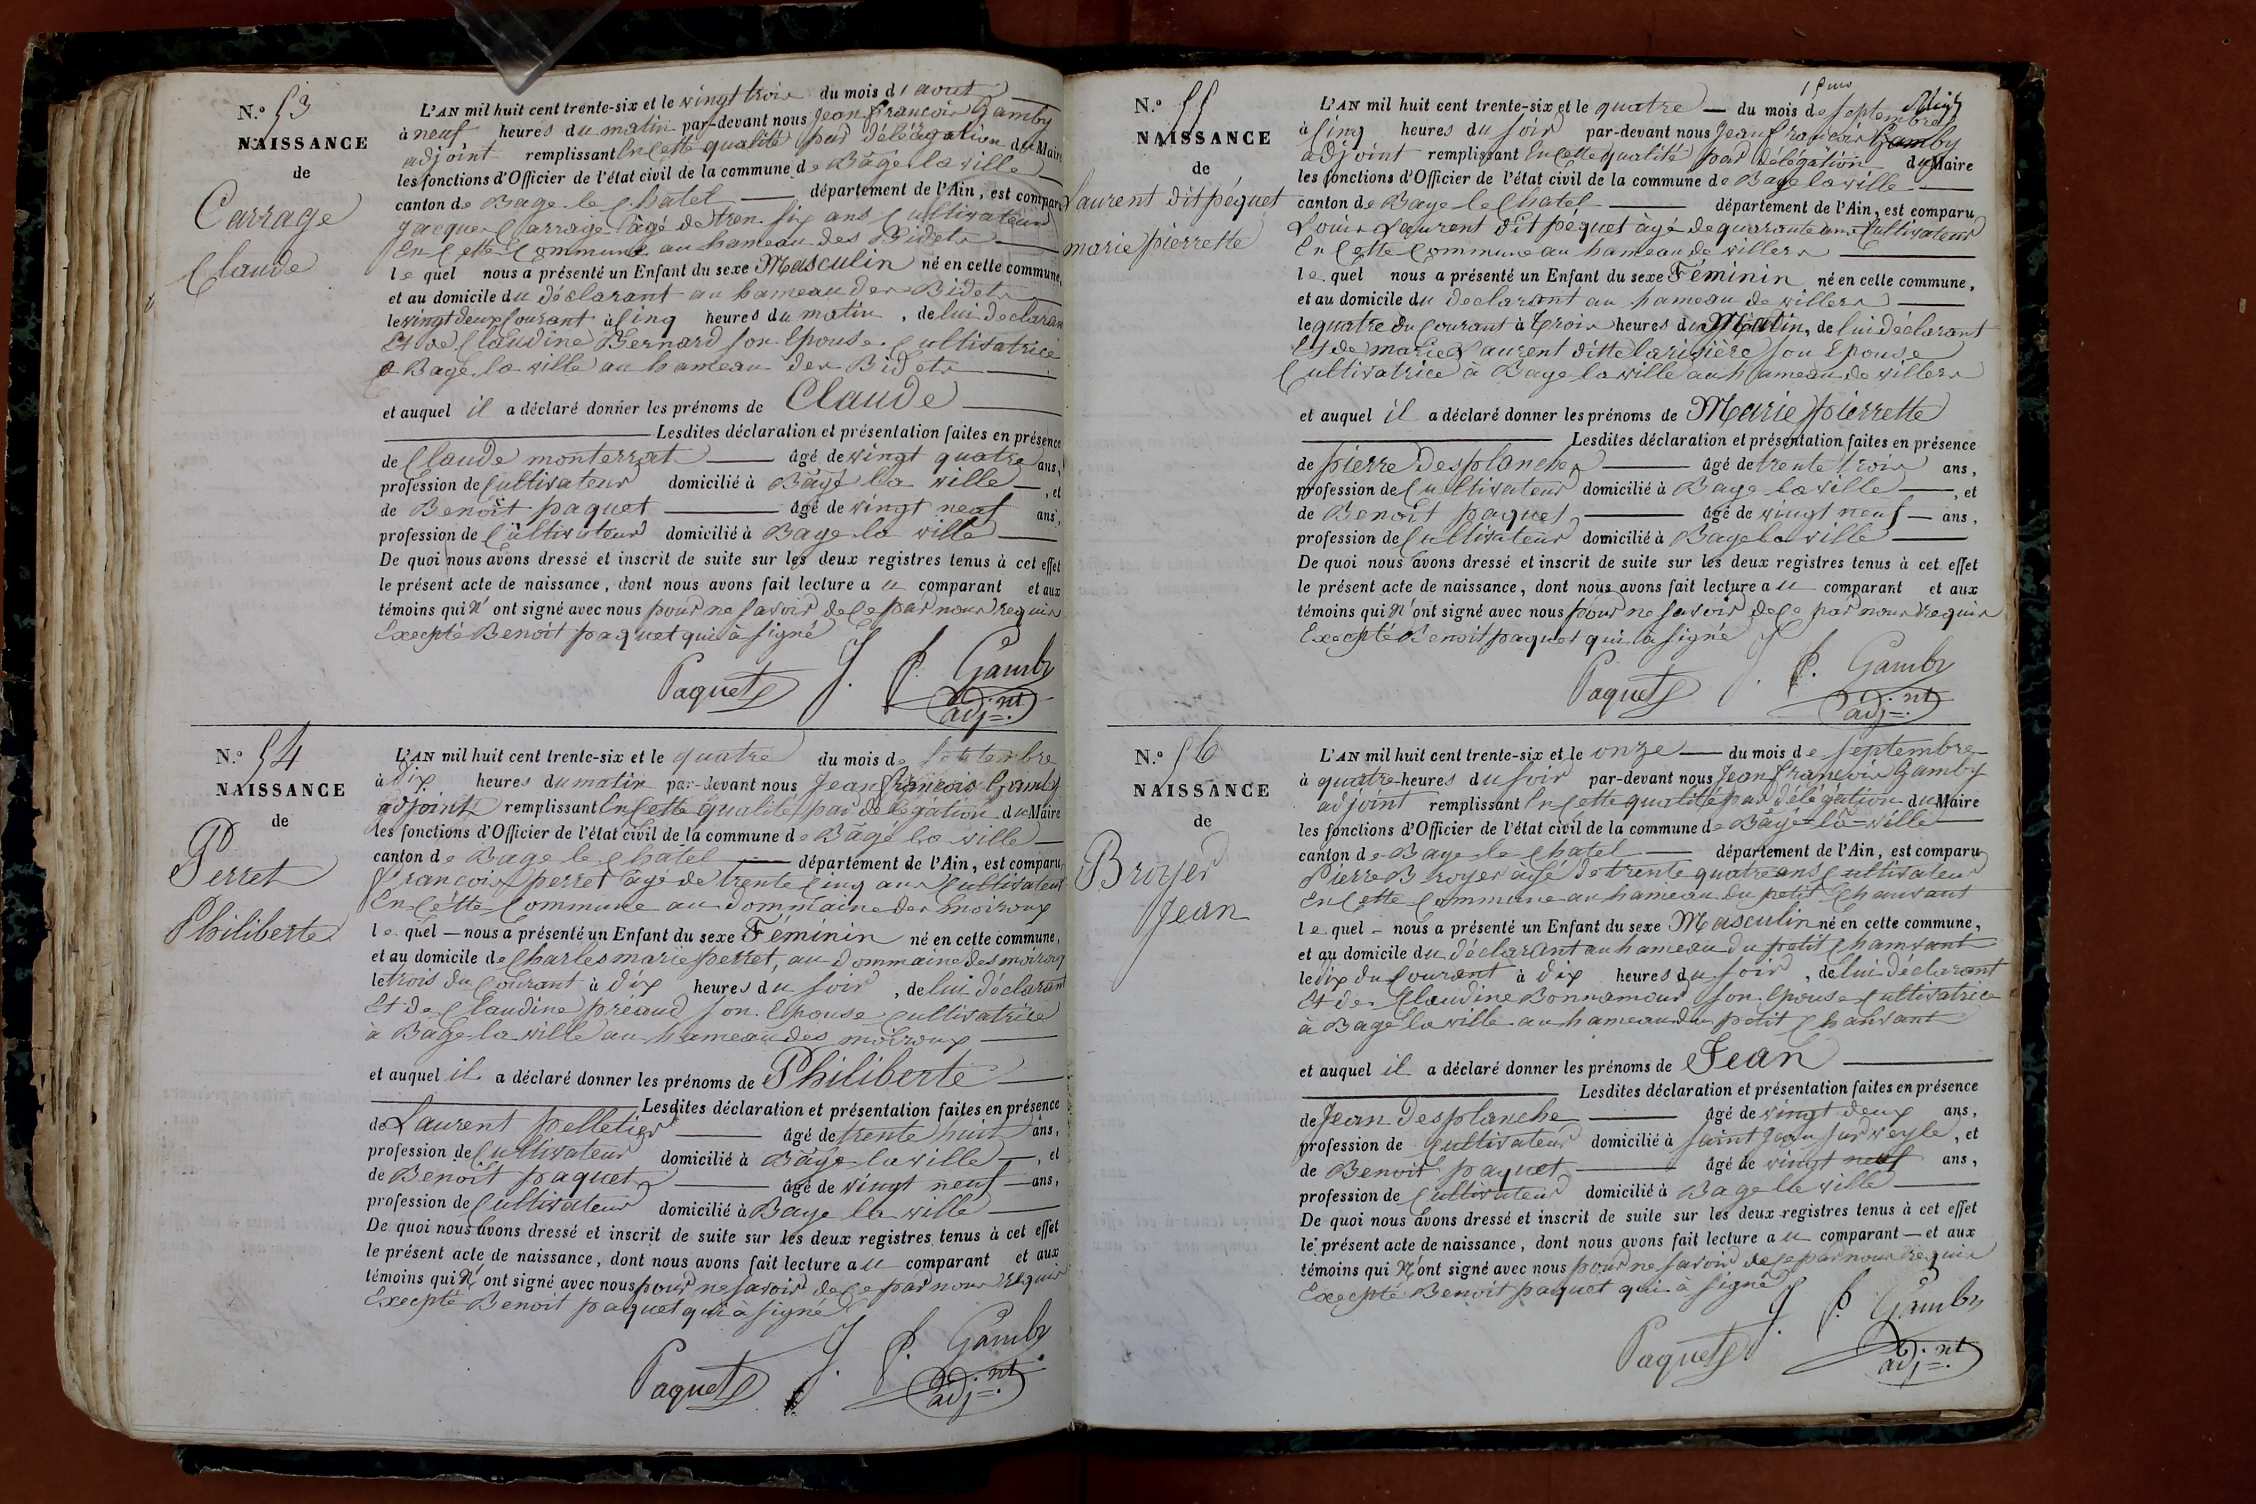 N.° 53
NAISSANCE
de
Carrage
Claude
L'AN mil huit cent trente-six et le vingt trois du mois d'aout
à neuf heures du matin par-devant nous Jean François Gamby
adjoint remplissant En Cette qualité par délégation du Maire
les fonctions d'Officier de l'état civil de la commune de Bâgé la ville
canton de Bage le Chatel département de l'Ain, est comparu
Jacques Carrage âgé de tren. six ans Cultivateur
En Cette Commune au hameau des Bidets
le quel nous a présenté un Enfant du sexe Masculin né en cette commune,
et au domicile du déclarant au hameau des Bidets
le vingt deux Courant à Cinq heures du matin, de lui déclarant
Et de Claudine Bernard son Epouse Cultivatrice
à Bagé la ville au hameau des Bidets
et auquel il a déclaré donner les prénoms de Claude
Lesdites déclaration et présentation faites en présence
de Claude monterrat âgé de vingt quatre ans,
profession de Cultivateur domicilié à Bâgé la ville, et
de Benoît paquet âgé de vingt neuf ans,
profession de Cultivateur domicilié à Bage la ville
De quoi nous avons dressé et inscrit de suite sur les deux registres tenus à cet effet
le présent acte de naissance, dont nous avons fait lecture au comparant et aux
témoins qui N'ont signé avec nous pour ne savoir de Ce par nous requis
Excepté Benoit paquet qui à signé
Paquet J. f. Gamby
adj.nt
N.° 54
NAISSANCE
de
Perret
Philiberte
L'AN mil huit cent trente-six et le quatre du mois de Septembre
à dix heures du matin par-devant nous Jean françois Gamby
adjoint remplissant En Cette qualité par délégation du Maire
les fonctions d'Officier de l'état civil de la commune de Bâgé la ville
canton de Bage le Chatel département de l'Ain, est comparu
François perret âgé de trente Cinq ans Cultivateur
En Cette Commune au dommaine des moiroux
le quel nous a présenté un Enfant du sexe Féminin né en cette commune,
et au domicile de Charles marie perret, au dommaine des moiroux
le trois du Courant à dix heures du soir, de lui déclarant
Et de Claudine préaud son Epouse Cultivatrice
à Bâgé la ville au hameau des moiroux
et auquel il a déclaré donner les prénoms de Philiberte
Lesdites déclaration et présentation faites en présence
de Laurent pelletier âgé de trente huit ans,
profession de Cultivateur domicilié à Bâgé la ville, et
de Benoît paquet âgé de vingt neuf ans,
profession de Cultivateur domicilié à Bage la ville
De quoi nous avons dressé et inscrit de suite sur les deux registres tenus à cet effet
le présent acte de naissance, dont nous avons fait lecture au comparant et aux
témoins qui N'ont signé avec nous pour ne savoir de Ce par nous requis
Excepté Benoit paquet qui à signé
Paquet J. f. Gamby
adj.nt
N.° 55
NAISSANCE
de
Laurent dit péquet
marie pierrette
L'AN mil huit cent trente-six et le quatre du mois de septembre
à Cinq heures du soir par-devant nous Jean françois Gamby
adjoint remplissant En Cette qualité par délégation du Maire
les fonctions d'Officier de l'état civil de la commune de Bage la ville
canton de Bage le Chatel département de l'Ain, est comparu
Louis Laurent dit péquet âgé de quarante ans Cultivateur
En Cette Commune au hameau de villers
le quel nous a présenté un Enfant du sexe Féminin né en cette commune,
et au domicile du declarant au hameau de villers
le quatre du Courant à trois heures du Matin, de lui déclarant
Et de marie Laurent ditte larisière son Epouse
Cultivatrice à Bage la ville au hameau de villers
et auquel il a déclaré donner les prénoms de Marie pierrette
Lesdites déclaration et présentation faites en présence
de pierre Desplanches âgé de trente trois ans,
profession de Cultivateur domicilié à Bage la ville, et
de Benoit paquet âgé de vingt neuf ans,
profession de Cultivateur domicilié à Bage la ville
De quoi nous avons dressé et inscrit de suite sur les deux registres tenus à cet effet
le présent acte de naissance, dont nous avons fait lecture au comparant et aux
témoins qui N'ont signé avec nous pour ne savoir de Ce par nous requis
Excepté Benoit paquet qui à signé
Paquet J. f. Gamby
adj.nt
N.° 56
NAISSANCE
de
Broyer
Jean
L'AN mil huit cent trente-six et le onze du mois de septembre
à quatre heures du soir par-devant nous Jean françois Gamby
adjoint remplissant En Cette qualité par délégation du Maire
les fonctions d'Officier de l'état civil de la commune de Bâgé la ville
canton de Bage le Chatel département de l'Ain, est comparu
Pierre Broyer âgé de trente quatre ans Cultivateur
En Cette Commune au hameau du petit Chanvant
le quel nous a présenté un Enfant du sexe Masculin né en cette commune,
et au domicile du déclarant au hameau du petit Chamvant
le dix du Courant à dix heures du soir, de lui déclarant
Et de Claudine Bonnamour son Epouse Cultivatrice
à Bagé la ville au hameau du petit Chanvant
et auquel il a déclaré donner les prénoms de Jean
Lesdites déclaration et présentation faites en présence
de Jean Desplanche âgé de vingt deux ans,
profession de Cultivateur domicilié à saint Jean sur veyle, et
de Benoit paquet âgé de vingt neuf ans,
profession de Cultivateur domicilié à Bage la ville
De quoi nous avons dressé et inscrit de suite sur les deux registres tenus à cet effet
le présent acte de naissance, dont nous avons fait lecture au comparant et aux
témoins qui N'ont signé avec nous pour ne savoir de Ce par nous requis
Excepté Benoit paquet qui à signé
Paquet J. f. Gamby
adj.nt